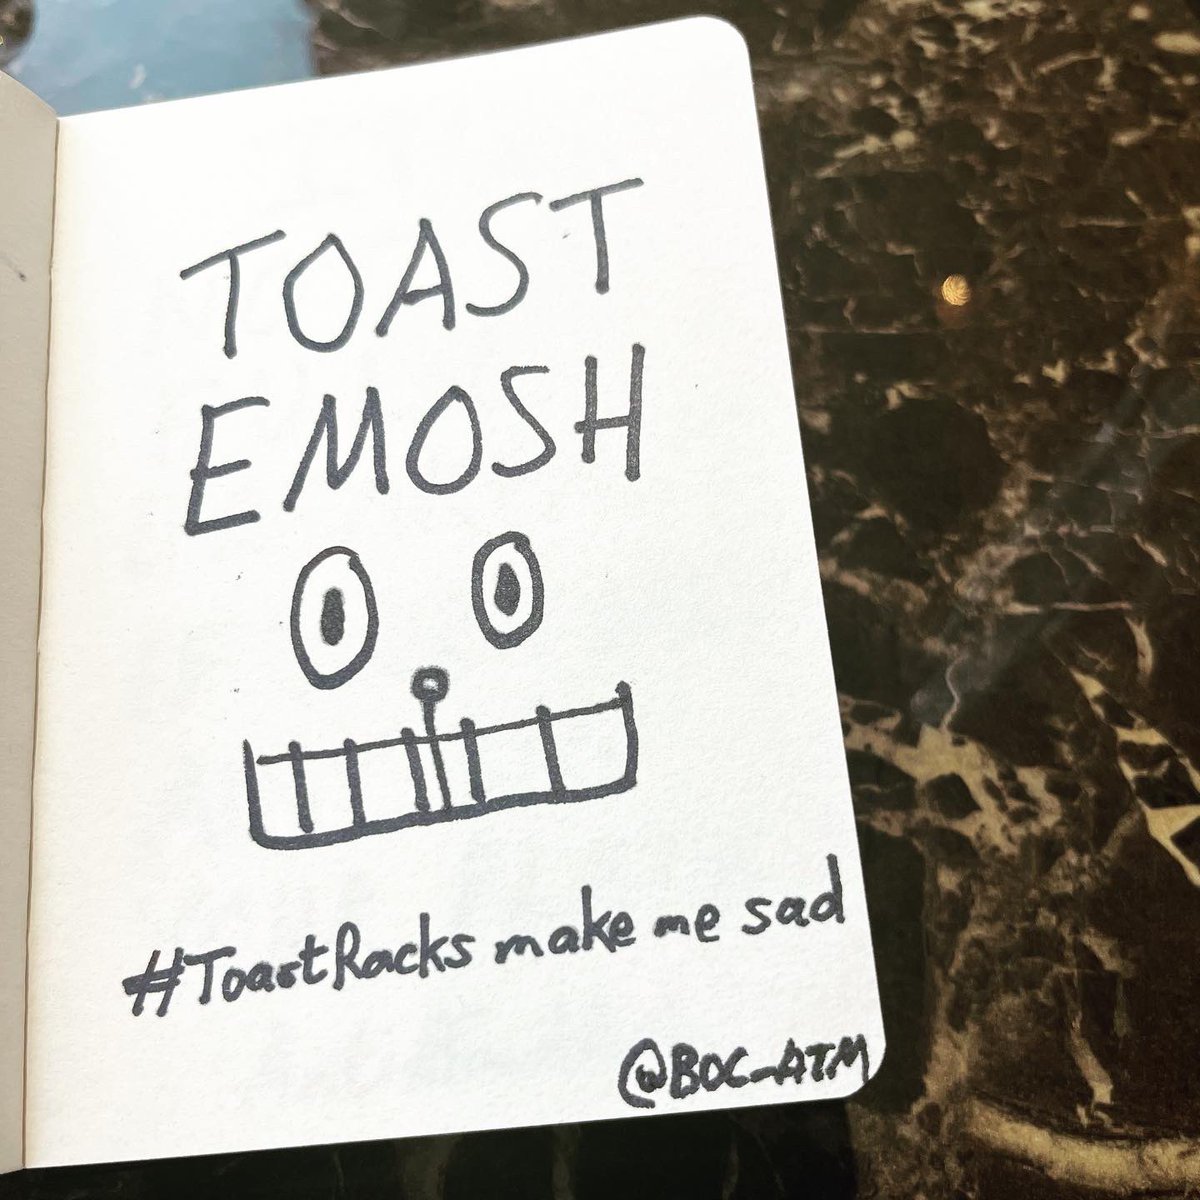 TOAST
EMOSH
#ToastRacks make me sad
@BOC_ATM